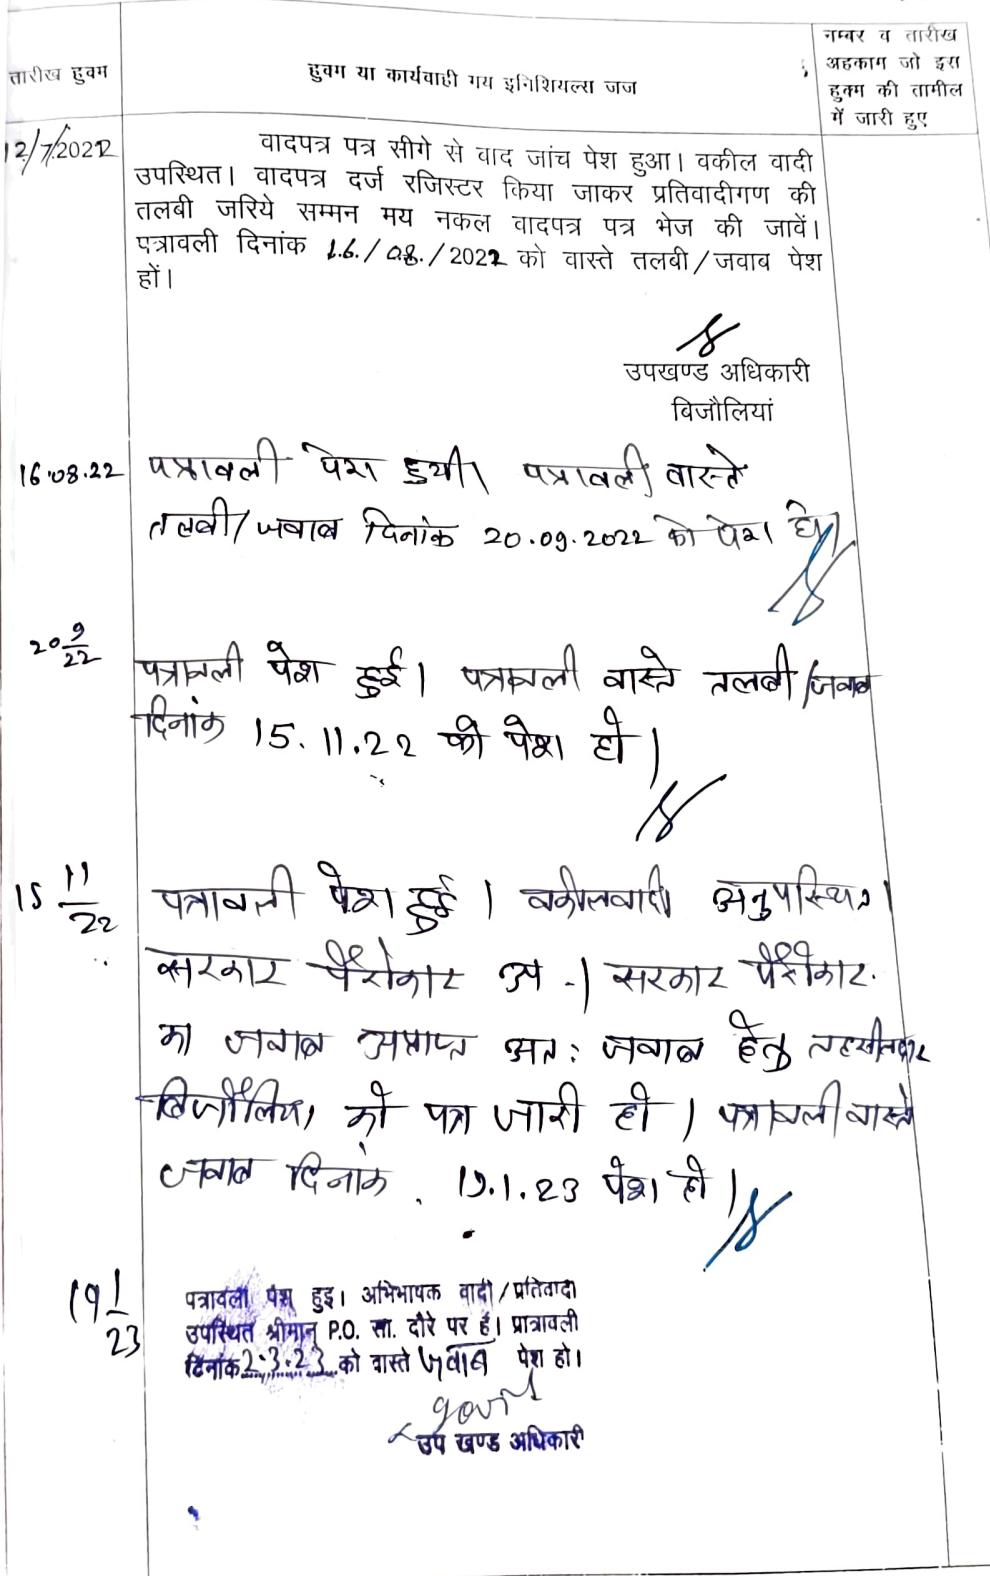 तारीख हुक्म
हुक्म या कार्यवाही मय इनिशियल्स जज
नम्बर व तारीख
अहकाम जो इस
हुक्म की तामील
में जारी हुए
12/7/2022
वादपत्र पत्र सीगे से वाद जांच पेश हुआ। वकील वादी
उपस्थित। वादपत्र दर्ज रजिस्टर किया जाकर प्रतिवादीगण की
तलबी जरिये सम्मन मय नकल वादपत्र पत्र भेज की जावें।
पत्रावली दिनांक 16./08./2022 को वास्ते तलबी/जवाब पेश
हों।
उपखण्ड अधिकारी
बिजौलियां
16.08.22 पत्रावली पेश हुयी। पत्रावली वास्ते
तलबी/जवाब दिनांक 20.09.2022 को पेश हो।
20 9/22
पत्रावली पेश हुई। पत्रावली वास्ते तलबी/जवाब
दिनांक 15.11.22 को पेश हो।
15 11/22 पत्रावली पेश हुई। वकीलवादी अनुपस्थित।
सरकार पैरोकार अ -। सरकार पैरोकार
का जवाब अप्राप्त अतः जवाब हेतु तहसीलदार
बिजौलियां को पत्र जारी हो। पत्रावली वास्ते
जवाब दिनांक 19.1.23 पेश हो।
19 1/23
पत्रावली पेश हुइ। अभिभाषक वादी/प्रतिवादी
उपस्थित श्रीमान् P.O. सा. दौरे पर हैं। प्रात्रावली
दिनांक 2.3.23 को वास्ते जवाब पेश हो।
उप खण्ड अधिकारी